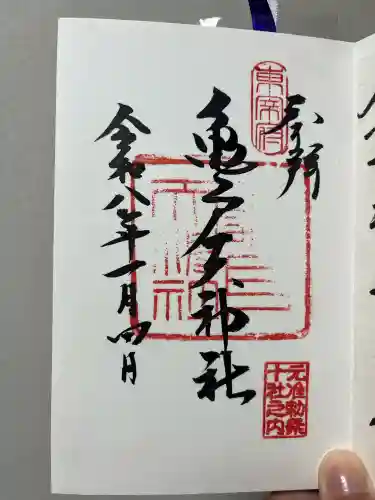 奉拝
東宰府
亀戸天神社
令和八年一月四日
元准勅祭
十社之内